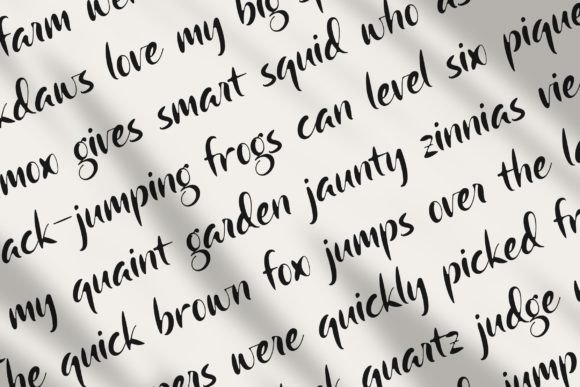 farm we
kdaws love my big sp
mox gives smart squid who as
ack-jumping frogs can level six pique
my quaint garden jaunty zinnias vie
the quick brown fox jumps over the la
pers were quickly picked fr
k quartz judge
jump